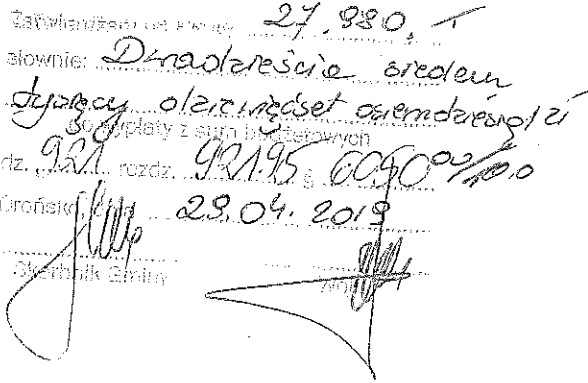 Zatwierdzam na kwotę 27.980,-
słownie: Dwadzieścia siedem
tysięcy dziewięćset osiemdziesiąt zł
do wypłaty z sum budżetowych 00/100
dz. 921 rozdz. 92195 § 6050
Orońsko, 29.04.2019
Skarbnik Gminy Wójt